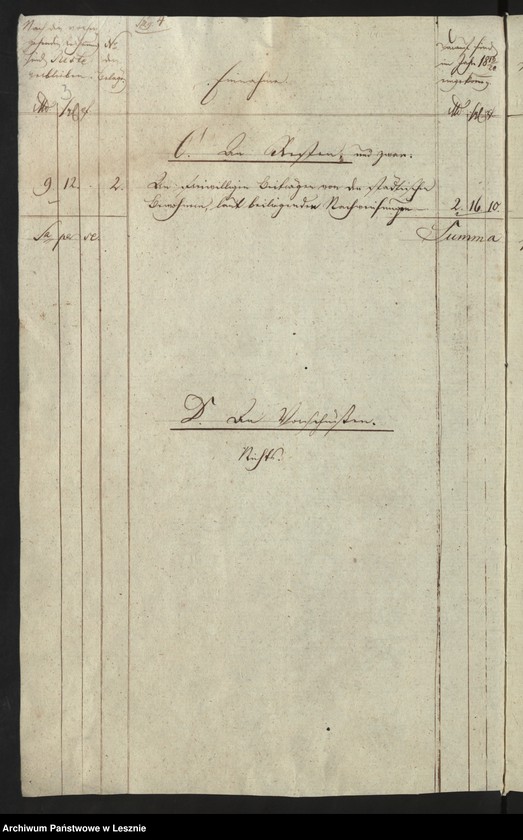 Pag. 4
Nach der vorher-
gehenden Rechnung
sind Reste
verblieben.
No
der
Belege
Einnahme
Hierauf sind
im Jahr 18
eingekommen
C. An Resten, und zwar:
9 12 . 2. An freiwilligen Beiträgen von den städtischen
Bewohnern, laut beiliegenden Nachweisungen 2. 16 10.
Sa per se. Summa
D. An Vorschüssen.
Nichts.
Archiwum Państwowe w Lesznie